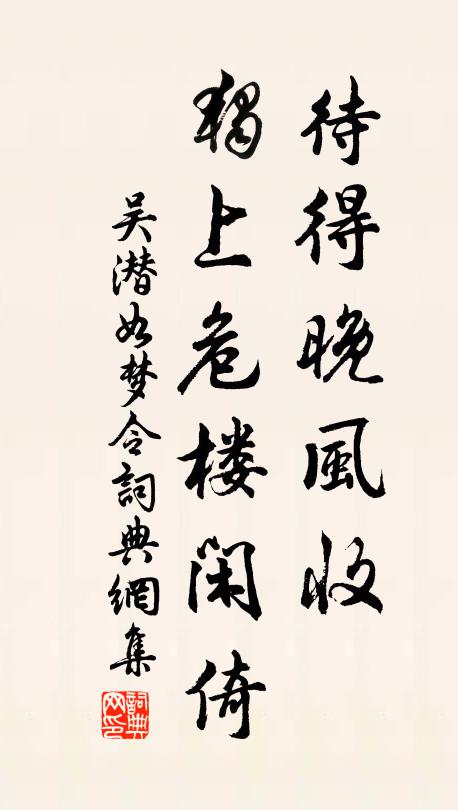 待得晚風收
獨上危楼闲倚
吴潜如梦令詞典網集
詞典网印